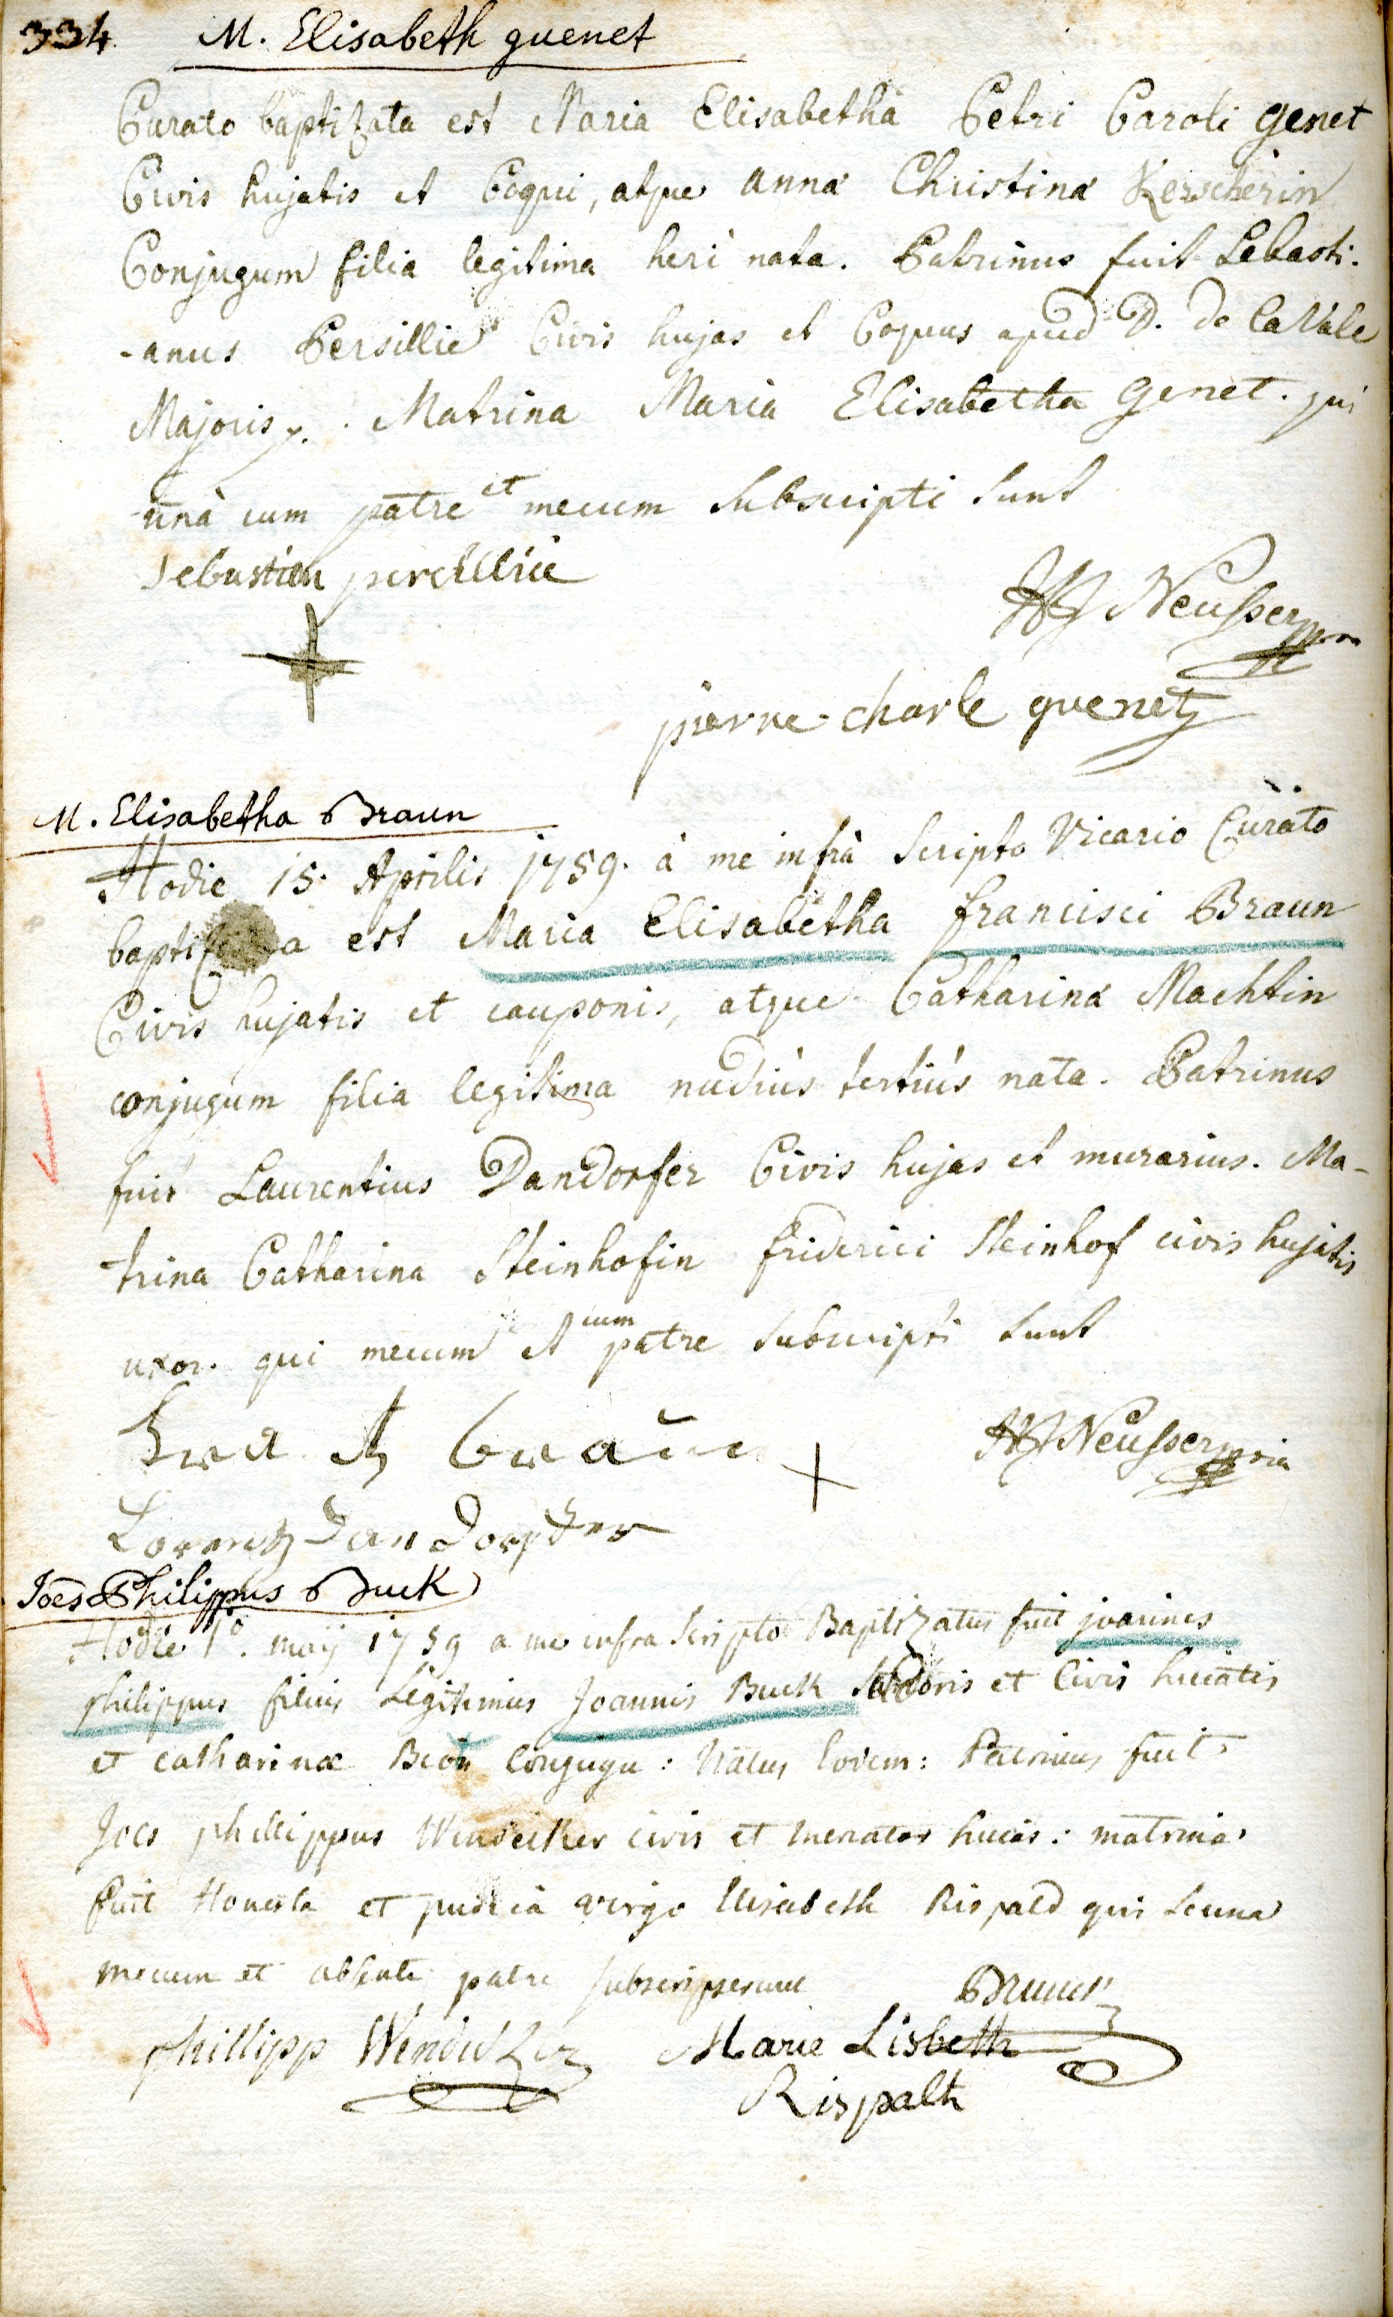 334. M. Elisabeth guenet
Curato baptizata est Maria Elisabetha Petri Caroli Genet
Civis hujatis et Coqui, atque anna Christina Kerscherin
Conjugum filia legitima heri nata. Patrinus fuit Sebasti-
-anus Persillie Civis hujas et Coquus apud D. de la Vale
Majoris. Matrina Maria Elisabetha Genet. qui
unà cum patre et mecum subscripti sunt
Sebastien
Neusser
pierre charle guenet
M. Elisabetha Braun
Hodie 15. Aprilis 1759. à me infrà scripto Vicario Curato
est Maria Elisabetha francisci Braun
Civis hujatis et cauponis, atque Catharina Machtin
conjugum filia legitima nudiùs tertiùs nata. Patrinus
fuit Laurentius Dandorfer Civis hujas et murarius. Ma-
trina Catharina Steinhofin friderici Steinhof civis hujatis
uxor. qui mecum et cum patre subscripti sunt
Neusser
Lorentz Dandorfer
Joes Philippus Buck
Hodie 1º. maÿ 1759 a me infra scripto Baptizatus fuit joannes
philippus filius Legitimus Joannis Buck et Civis huiatis
et catharinæ conjugu: Natus Eodem: Patrinus fuit
Joes phillippus civis et huias: matrina
fuit Honesta et pudica virgo Elisabeth Rispald qui
mecum et absente patre subscripserunt
phillipp
Marie Lisbeth
Rispalt